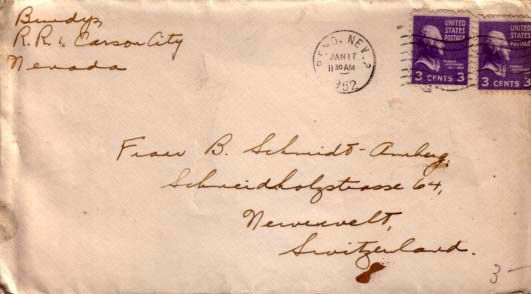 Bundy,
R.R. 1, Carson City
Nevada
RENO, NEV. 2
JAN 17
11 30 AM
1952
UNITED
STATES
POSTAGE
3 CENTS 3
UNITED
STATES
POSTAGE
3 CENTS 3
Frau B. Schmidt-Amberg,
Schneidholzstrasse 64,
Neuewelt,
Switzerland.
3-